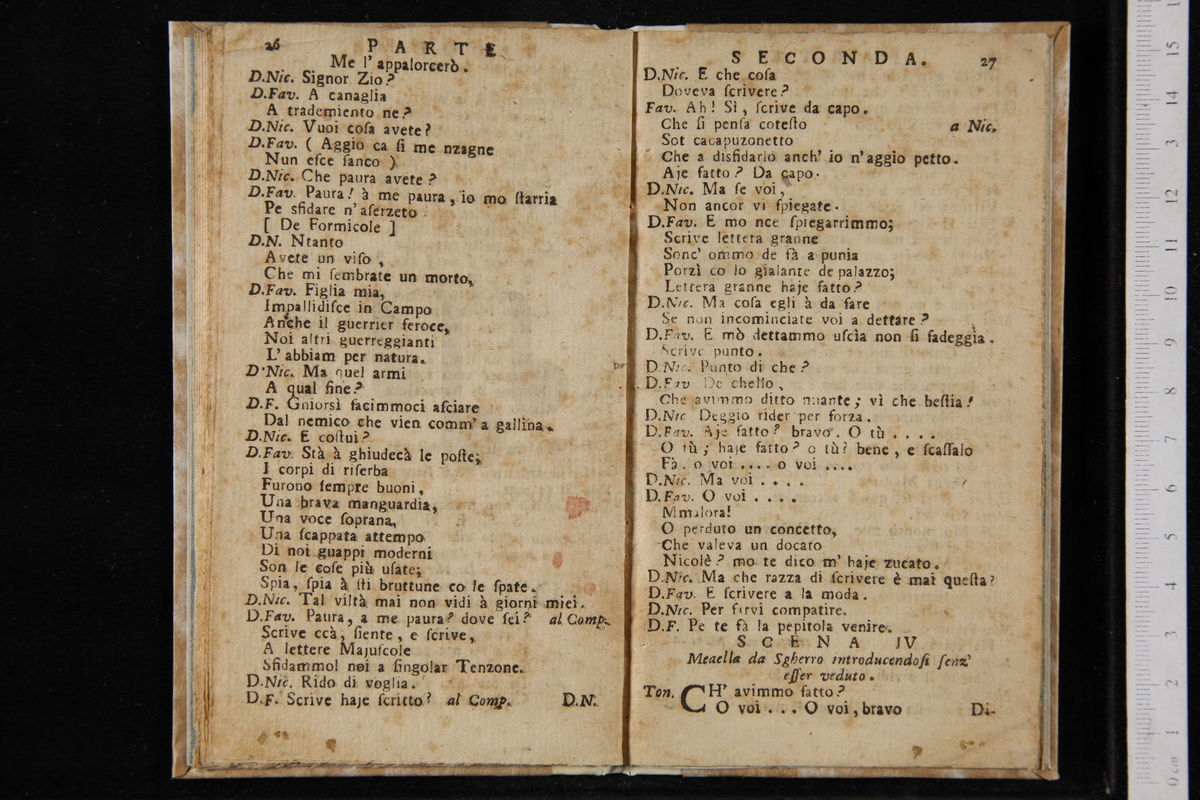 26
PARTE
Me l' appalorcerò.
D.Nic. Signor Zio?
D.Fav. A canaglia
A trademiento ne?
D.Nic. Vuoi coſa avete?
D.Fav. ( Aggio ca ſi me nzagne
Nun eſce ſanco )
D.Nic. Che paura avete?
D.Fav. Paura! à me paura, io mo ſtarria
Pe sfidare n'aſerzeto
[ De Formicole ]
D.N. Ntanto
Avete un viſo,
Che mi ſembrate un morto,
D.Fav. Figlia mia,
Impallidiſce in Campo
Anche il guerrier feroce,
Noi altri guerreggianti
L'abbiam per natura.
D.Nic. Ma quel armi
A qual fine?
D.F. Gniorsì facimmoci aſciare
Dal nemico che vien comm' a gallina.
D.Nic. E coſtui?
D.Fav. Stà à ghiudecà le poſte;
I corpi di riſerba
Furono ſempre buoni,
Una brava manguardia,
Una voce ſoprana,
Una ſcappata attempo
Di noi guappi moderni
Son le coſe più uſate;
Spia, ſpia à ſti bruttune co le ſpate.
D.Nic. Tal viltà mai non vidi à giorni miei.
D.Fav. Paura, a me paura? dove ſei? al Comp.
Scrive ccà, ſiente, e ſcrive,
A lettere Majuſcole
Sfidammol noi a ſingolar Tenzone.
D.Nic. Rido di voglia.
D.F. Scrive haje ſcritto? al Comp.
D.N.
SECONDA.
27
D.Nic. E che coſa
Doveva ſcrivere?
Fav. Ah! Sì, ſcrive da capo.
Che ſi penſa coteſto a Nic.
Sot cacapuzonetto
Che a disfidarlo anch' io n'aggio petto.
Aje fatto? Da capo.
D.Nic. Ma ſe voi,
Non ancor vi ſpiegate.
D.Fav. E mo nce ſpiegarrimmo;
Scrive lettera granne
Sonc' ommo de fà a punia
Porzì co lo gialante de palazzo;
Lettera granne haje fatto?
D.Nic. Ma coſa egli à da fare
Se non incominciate voi a dettare?
D.Fav. E mò dettammo uſcìa non ſi ſadeggia.
Scrive punto.
D.Nic. Punto di che?
D.Fav De chello,
Che avimmo ditto nnante; vì che beſtia!
D.Nic Deggio rider per forza.
D.Fav. Aje fatto? bravo. O tù ....
O tù; haje fatto? o tù? bene, e ſcaſſalo
Fà. o voi .... o voi ....
D.Nic. Ma voi ....
D.Fav. O voi ....
Mmalora!
O perduto un concetto,
Che valeva un docato
Nicolè? mo te dico m' haje zucato.
D.Nic. Ma che razza di ſcrivere è mai queſta?
D.Fav. E ſcrivere a la moda.
D.Nic. Per farvi compatire.
D.F. Pe te fà la pepitola venire.
SCENA IV
Meaella da Sgherro introducendoſi ſenz'
eſſer veduto.
Ton. CH' avimmo fatto?
O voi ... O voi, bravo
Di-